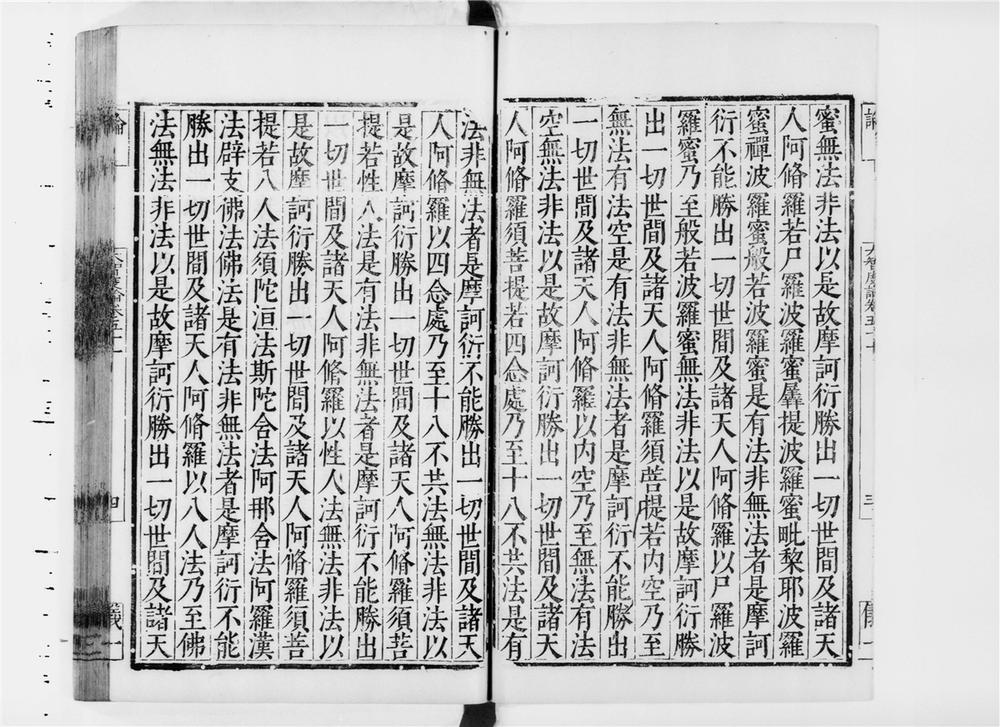 蜜無法非法以是故摩訶衍勝出一切世間及諸天
人阿脩羅若尸羅波羅蜜羼提波羅蜜毗黎耶波羅
蜜禪波羅蜜般若波羅蜜是有法非無法者是摩訶
衍不能勝出一切世間及諸天人阿脩羅以尸羅波
羅蜜乃至般若波羅蜜無法非法以是故摩訶衍勝
出一切世間及諸天人阿脩羅須菩提若内空乃至
無法有法空是有法非無法者是摩訶衍不能勝出
一切世間及諸天人阿脩羅以内空乃至無法有法
空無法非法以是故摩訶衍勝出一切世間及諸天
人阿脩羅須菩提若四念處乃至十八不共法是有
法非無法者是摩訶衍不能勝出一切世間及諸天
人阿脩羅以四念處乃至十八不共法無法非法以
是故摩訶衍勝出一切世間及諸天人阿脩羅須菩
提若性人法是有法非無法者是摩訶衍不能勝出
一切世間及諸天人阿脩羅以性人法無法非法以
是故摩訶衍勝出一切世間及諸天人阿脩羅須菩
提若八人法須陀洹法斯陀含法阿那含法阿羅漢
法辟支佛法佛法是有法非無法者是摩訶衍不能
勝出一切世間及諸天人阿脩羅以八人法乃至佛
法無法非法以是故摩訶衍勝出一切世間及諸天
論
四
儀一